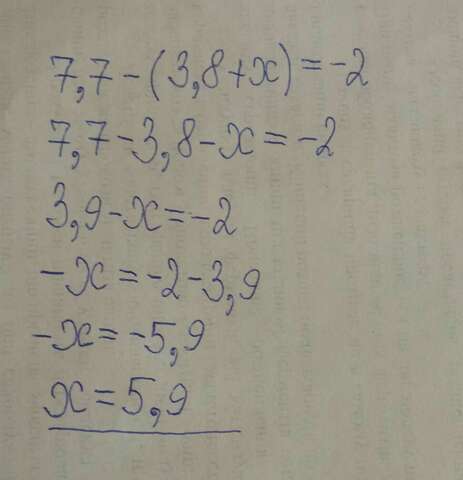 7,7-(3,8+x)=-2
7,7-3,8-x=-2
3,9-x=-2
-x=-2-3,9
-x=-5,9
x=5,9